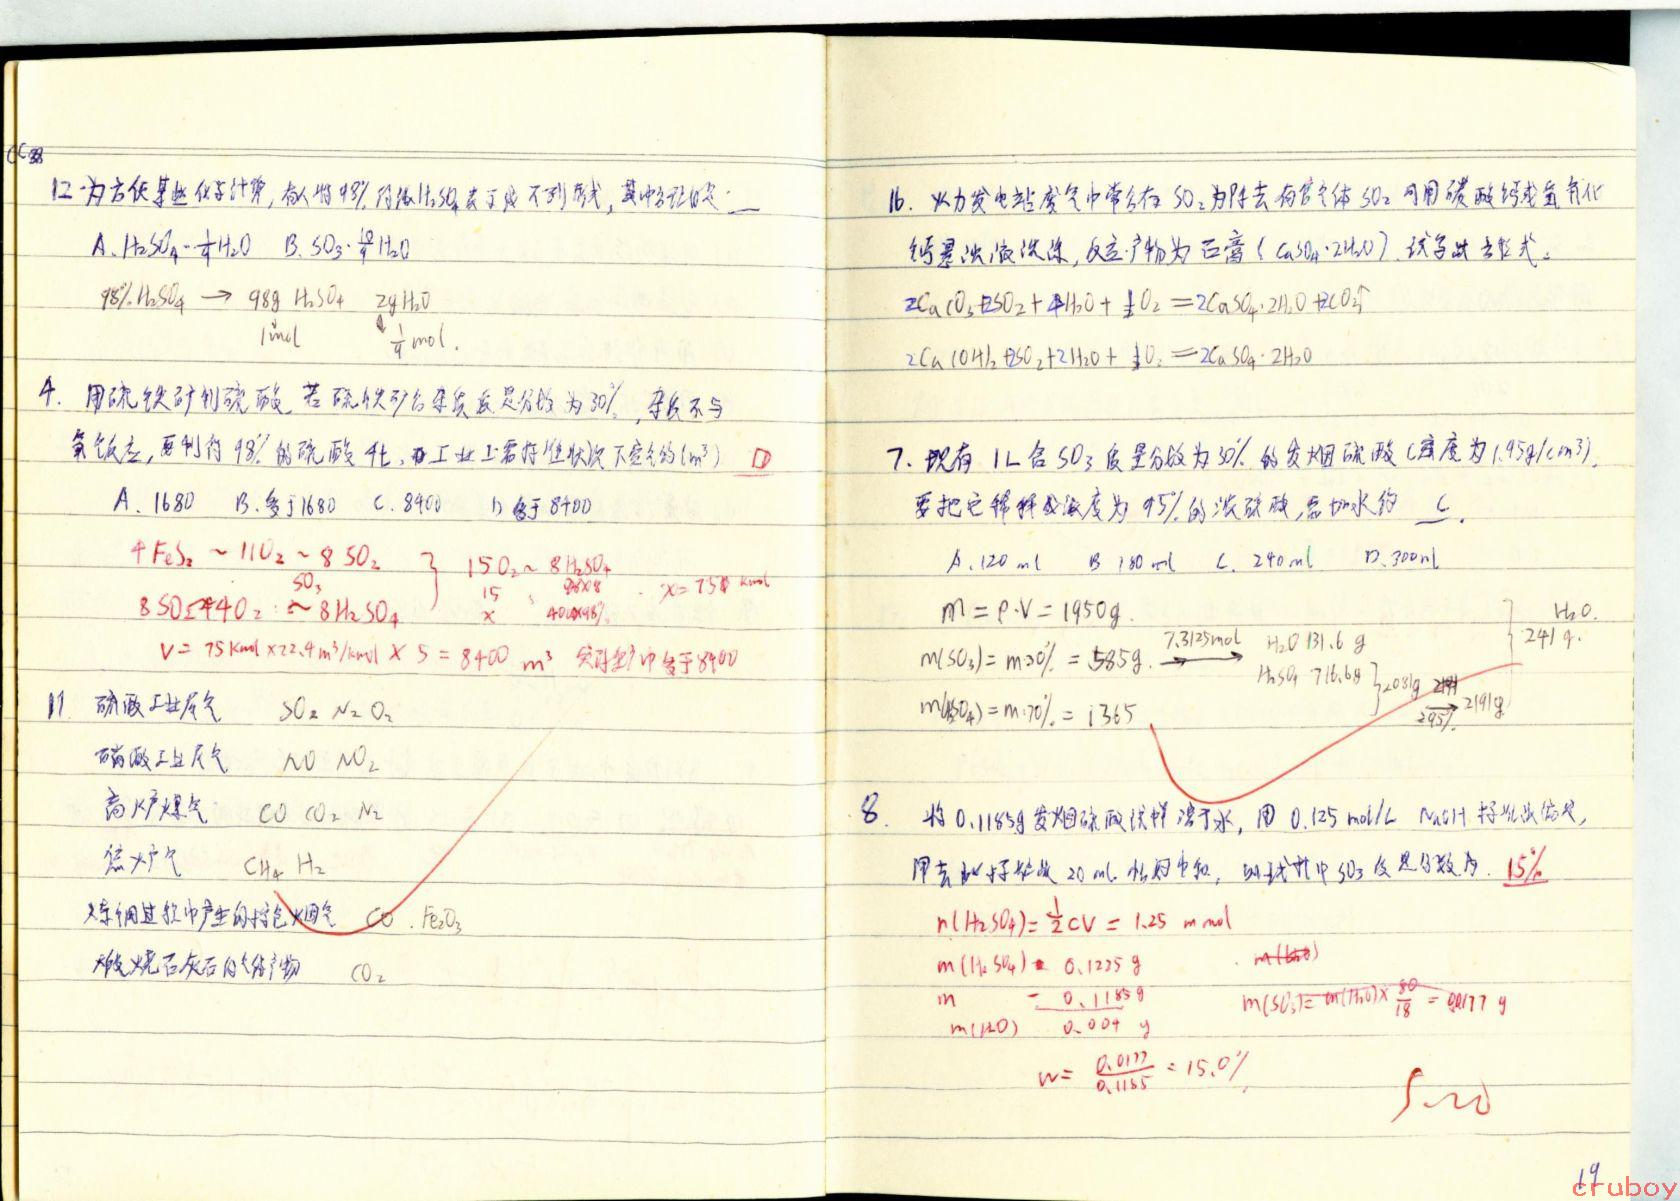 CC38
12. 为方便某些化学计算, 有人将98%的浓H₂SO₄表示成下列形式, 其中合理的是: __
A. H₂SO₄·1/9H₂O B. SO₃·10/9H₂O
98%H₂SO₄ → 98g H₂SO₄ 2g H₂O
1mol 1/9 mol.
4. 用硫铁矿制硫酸, 若硫铁矿含杂质质量分数为30%, 杂质不与
氧气反应, 要制得98%的硫酸4t, 工业上需标准状况下空气约(m³) D
A. 1680 B. 多于1680 C. 8400 D 多于8400
4FeS₂ ~ 11O₂ ~ 8SO₂
SO₃
8SO₂ + 4O₂ ~ 8H₂SO₄
15O₂ ~ 8H₂SO₄
15 98×8
x 4000×98% x=75 kmol
V = 75 Kmol × 22.4 m³/kmol × 5 = 8400 m³ 实际生产中多于8400
11 硫酸工业尾气 SO₂ N₂ O₂
硝酸工业尾气 NO NO₂
高炉煤气 CO CO₂ N₂
焦炉气 CH₄ H₂
炼钢过程中产生的棕色烟气 CO . Fe₂O₃
煅烧石灰石的气体产物 CO₂
16. 火力发电站废气中常含有SO₂ 为除去有害气体SO₂ 可用碳酸钙或氢氧化
钙悬浊液洗涤, 反应产物为石膏(CaSO₄·2H₂O). 试写出方程式.
2CaCO₃+2SO₂+4H₂O+O₂=2CaSO₄·2H₂O+2CO₂↑
2Ca(OH)₂+2SO₂+2H₂O+O₂=2CaSO₄·2H₂O
7. 现有 1L含SO₃质量分数为30%的发烟硫酸(密度为1.95g/cm³),
要把它稀释成浓度为95%的浓硫酸, 需加水约 C.
A. 120 ml B 180 ml C. 240 ml D. 300ml
m = ρ·V = 1950g.
m(SO₃) = m·30% = 585g. 7.3125mol → H₂O 131.6 g
H₂SO₄ 716.6g
m(H₂SO₄) = m·70% = 1365
2081g ÷95% → 2191g
H₂O.
241 g.
8. 将0.1185g发烟硫酸试样溶于水, 用 0.125 mol/L NaOH 标准液滴定,
用去此标准液20 mL恰好中和, 则试样中SO₃质量分数为. 15%
n(H₂SO₄) = 1/2 CV = 1.25 m mol
m(H₂SO₄) = 0.1225 g
m = 0.1185 g
m(H₂O) 0.004 g
m(SO₃) = m(H₂O) × 80/18 = 0.0177 g
w = 0.0177/0.1185 = 15.0%
5.20
19
cruboy